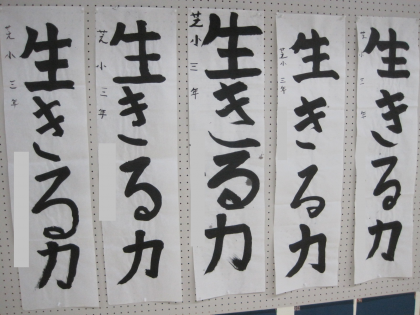 生きる力
芝小三年
生きる力
芝小三年
生きる力
芝小三年
生きる力
芝小三年
生きる力
芝小三年